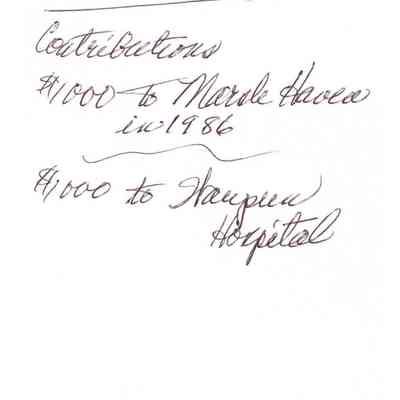 Contributions
$1000 to Haven
in 1986
$1,000 to
Hospital